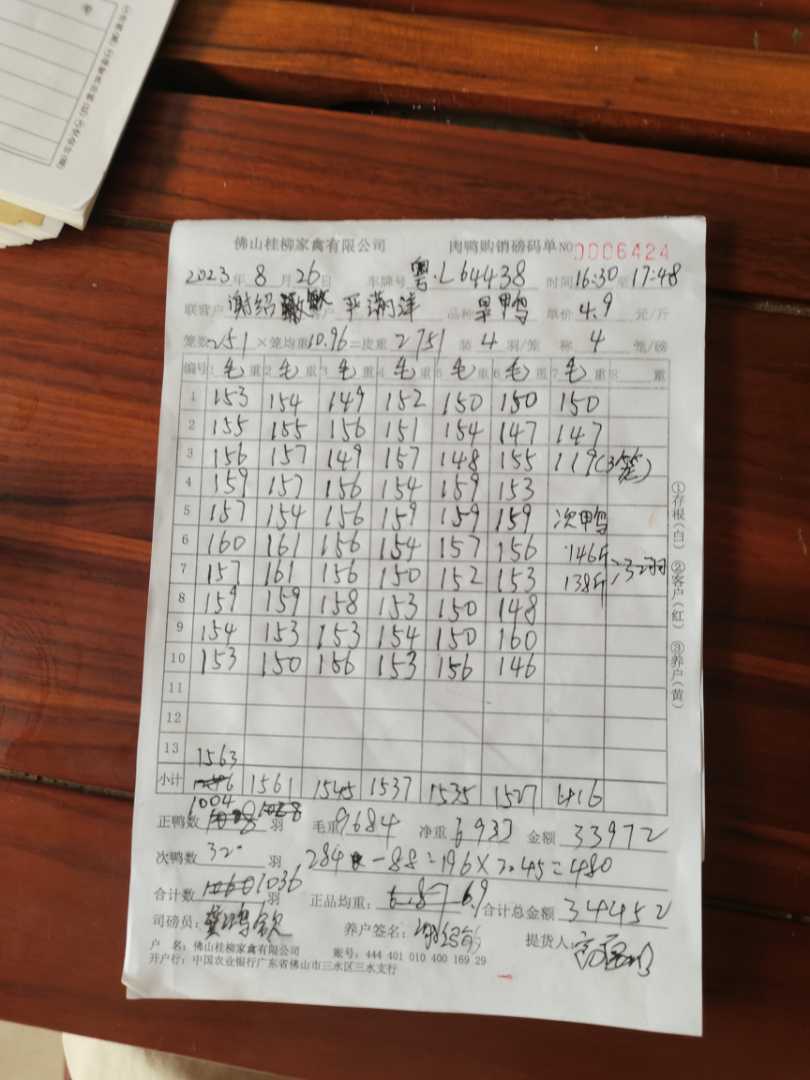 佛山桂柳家禽有限公司 肉鸭购销磅码单 NO 0006424
2023年 8月 26日 车牌号 粤.L64438 时间 16:30 至 17:48
联营户 谢绍 品种 单价 4.9 元/斤
笼数 251 × 笼均重 10.96 = 皮重 2751 装 4 羽/笼 称 4 笼/磅
编号 1 毛重 2 毛重 3 毛重 4 毛重 5 毛重 6 毛重 7 毛重 8 重
1 153 154 149 152 150 150 150
2 155 155 156 151 154 147 147
3 156 157 149 157 148 155 119(3笼)
4 159 157 156 154 159 153
5 157 154 156 159 159 159 次鸭
6 160 161 156 154 157 156 146斤
7 157 161 156 150 152 153 138斤 32羽
8 159 159 158 153 150 148
9 154 153 153 154 150 160
10 153 150 156 153 156 146
11
12
13
1563
小计 1561 1545 1537 1535 1527 416
1004
正鸭数 羽 毛重 9684 净重 6933 金额 33972
次鸭数 32 羽 284 -88=196×2.45=480
合计数 1036 羽 正品均重: 6.9 合计总金额 34452
司磅员: 养户签名: 提货人:
户 名:佛山桂柳家禽有限公司 账号:444 401 010 400 169 29
开户行:中国农业银行广东省佛山市三水区三水支行
①存根(白) ②客户(红) ③养户(黄)